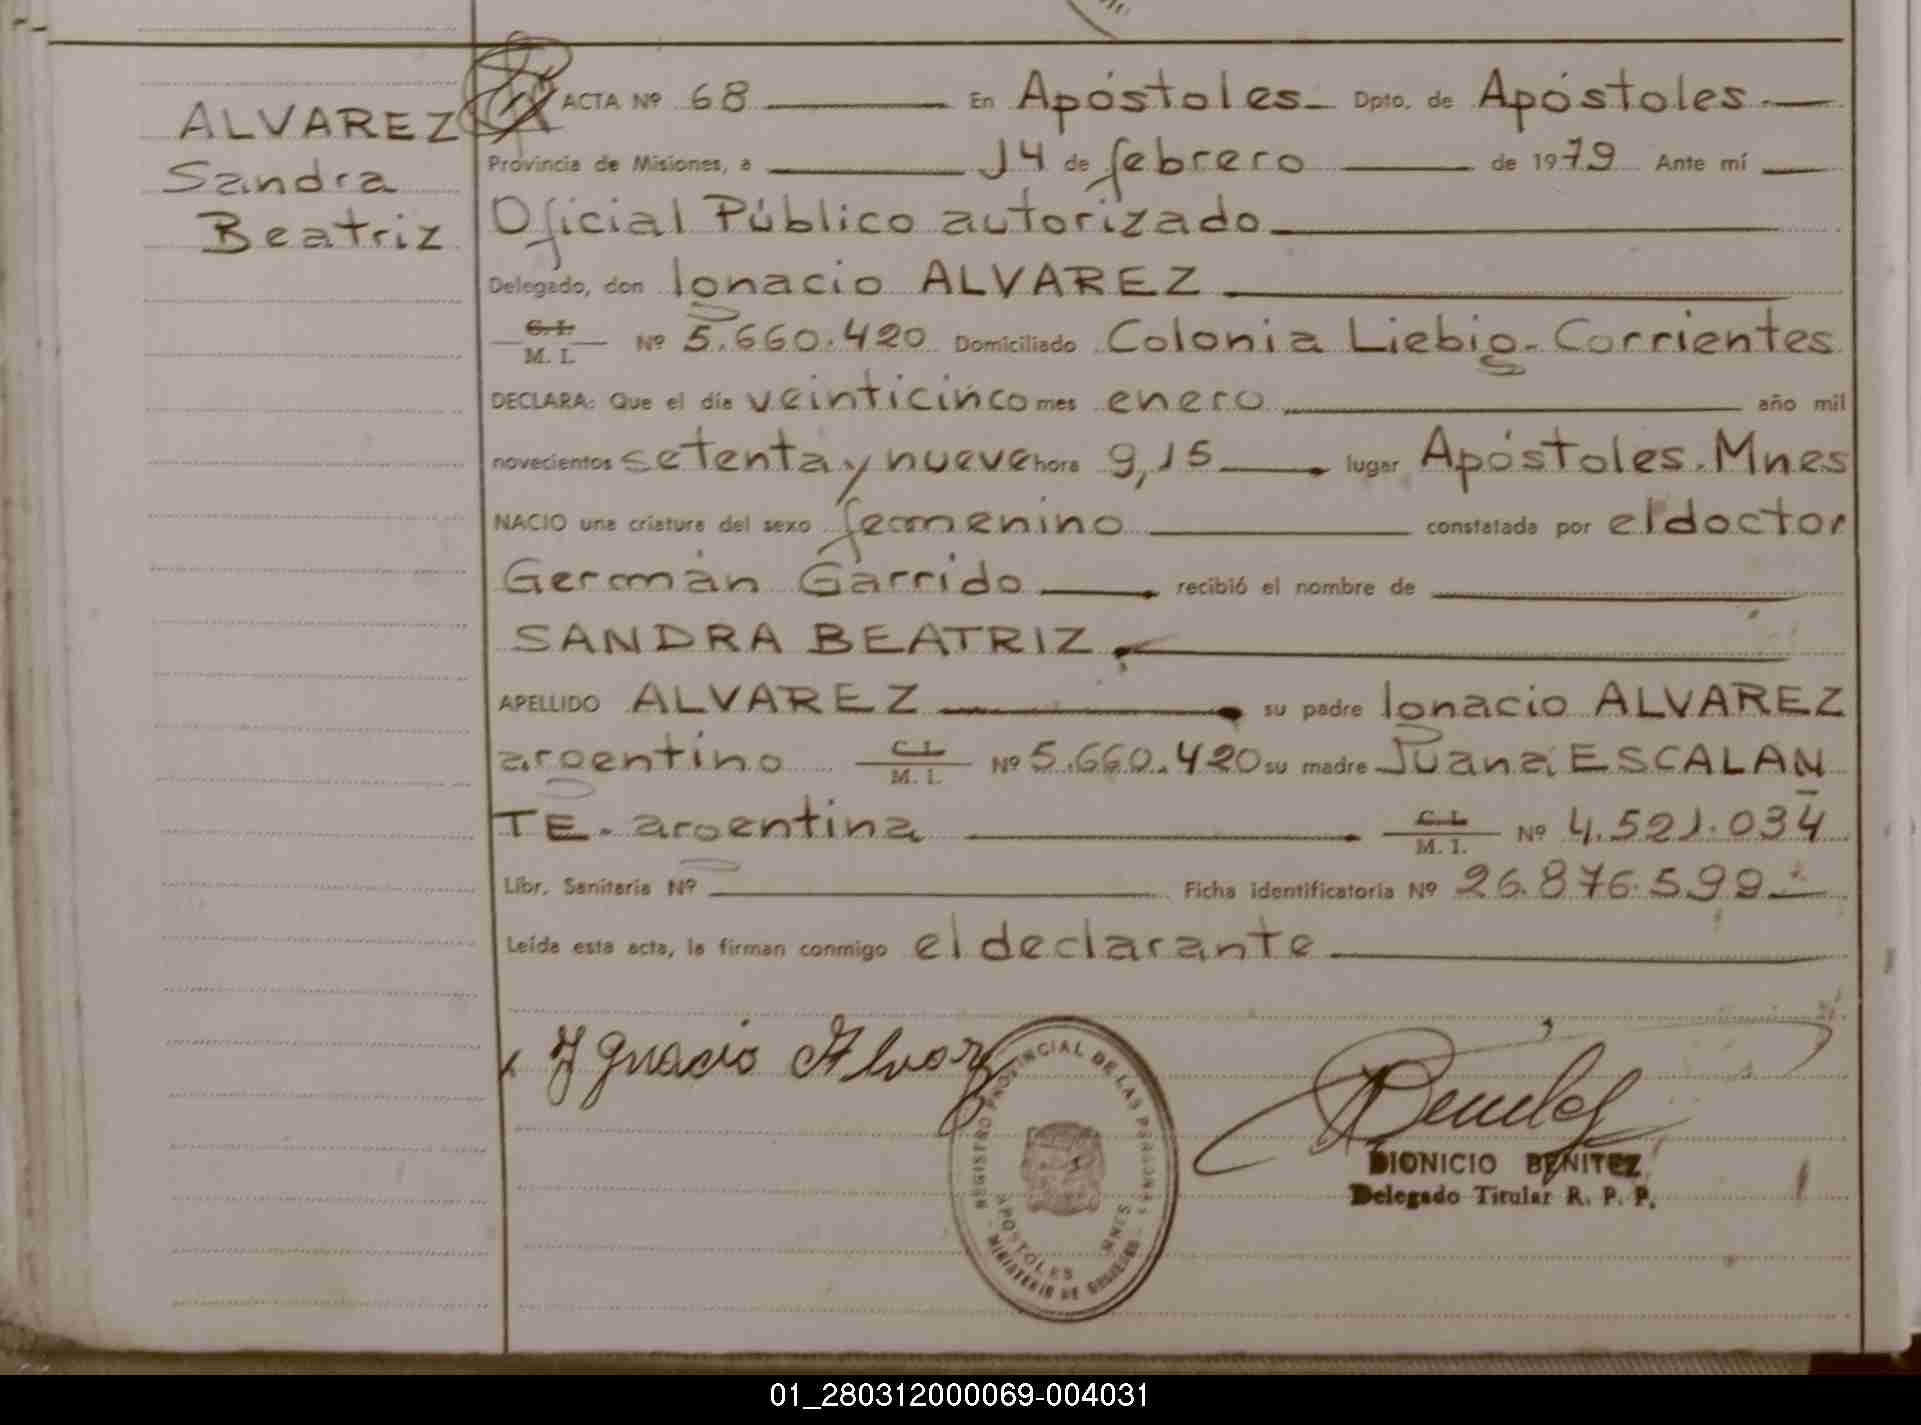 ALVAREZ
Sandra
Beatriz
ACTA Nº 68 En Apóstoles Dpto. de Apóstoles
Provincia de Misiones, a 14 de febrero de 1979 Ante mí
Oficial Público autorizado
Delegado, don Ignacio ALVAREZ
C. I. M. I. Nº 5.660.420 Domiciliado Colonia Liebig-Corrientes
DECLARA: Que el día veinticinco mes enero año mil
novecientos setenta y nueve hora 9,15 lugar Apóstoles. Mnes
NACIO una criatura del sexo femenino constatada por el doctor
Germán Garrido recibió el nombre de
SANDRA BEATRIZ
APELLIDO ALVAREZ su padre Ignacio ALVAREZ
argentino C. I. M. I. Nº 5.660.420 su madre Juana ESCALAN
TE. argentina C. I. M. I. Nº 4.521.034
Libr. Sanitaria Nº Ficha identificatoria Nº 26.876.599
Leída esta acta, la firman conmigo el declarante
Ignacio Alvarez
REGISTRO PROVINCIAL DE LAS PERSONAS
APOSTOLES MNES
MINISTERIO DE GOBIERNO
DIONICIO BENITEZ
Delegado Titular R. P. P.
01_280312000069-004031